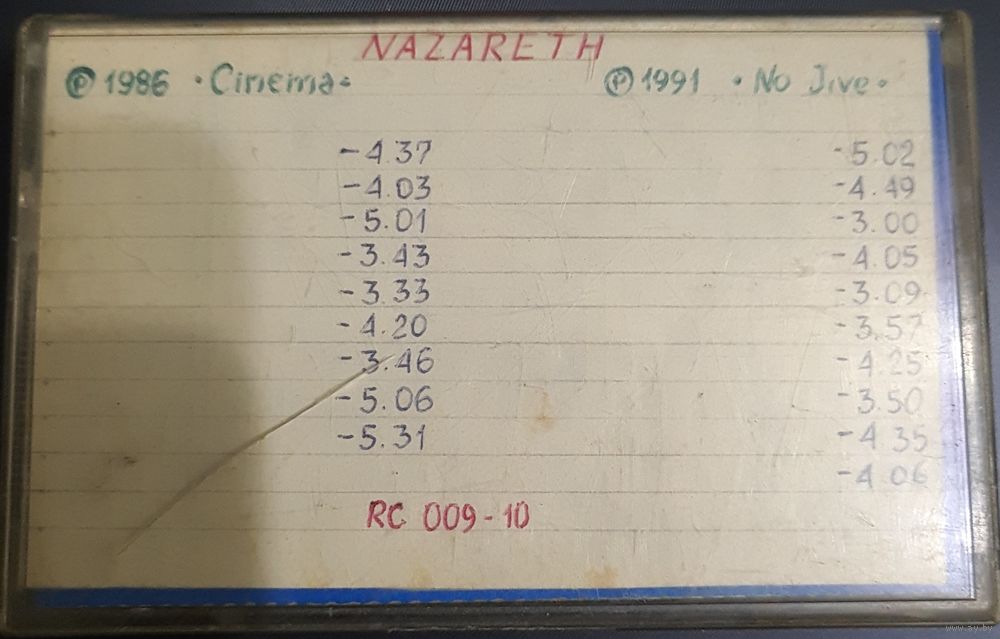 NAZARETH
Ⓟ 1986 •Cinema•
Ⓟ 1991 • No Jive •
-4.37
-4.03
-5.01
-3.43
-3.33
-4.20
-3.46
-5.06
-5.31
-5.02
-4.49
-3.00
-4.05
-3.09
-3.57
-4.25
-3.50
-4.35
-4.06
RC 009-10
www.ay.by